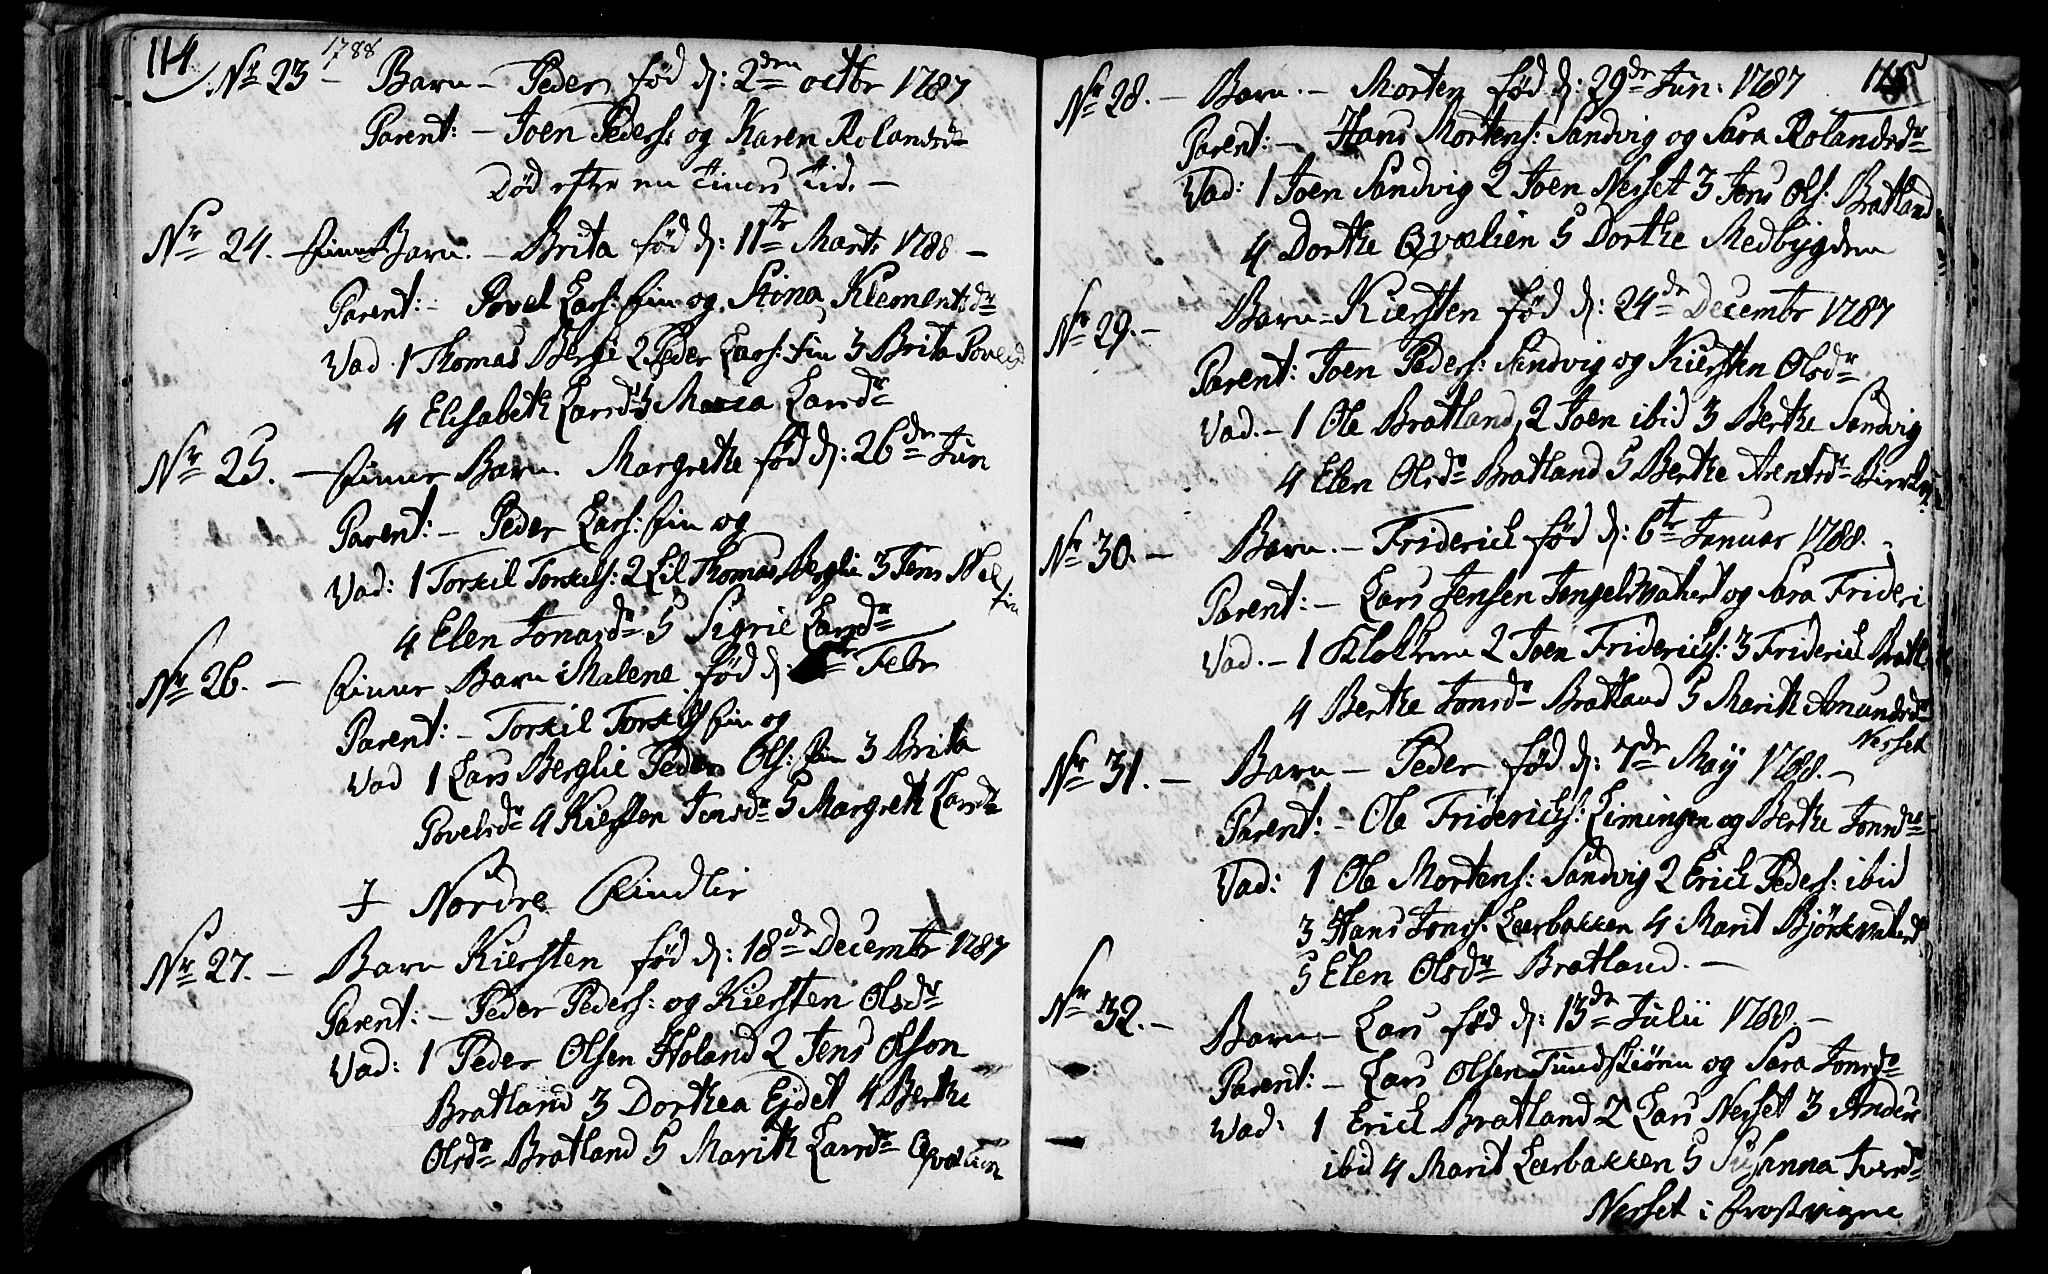 114
1788
Nr 23 Barn – Peder fød d: 2den octbr 1787
Parent: – Joen Peders: og Karen Rolandsdr
Død efter en Times Tid. –
Nr 24. – Finne Barn. – Brita fød d: 11te Marts 1788 –
Parent: – Povel Lars: Fin og Stina Klementsdr
Vad 1 Thomas Berglie 2 Peder Lars: Fin 3 Brita Povels
4 Elisabeth Larsdr 5 Maria Larsdr
Nr 25. – Finner Barn. Margrethe fød d: 26de Jun
Parent: – Peder Lars: Fin og
Vad: 1 Torkil Torkils: 2 Lil Thomas Berglie 3 Jens Niel
Fin
4 Elen Jonasdr 5 Sigrie Larsdr
Nr 26. – Finner Barn Malene fød d: Febr
Parent: – Torkil Torkils Fin og
Vad 1 Lars Berglie Peder Ols: Fin 3 Brita
Povelsdr 4 Kiersten Jensdr 5 Margreth Larsdr
I Nordre Findlie
Nr 27. – Barn Kiersten fød d: 18de Decembr 1787
Parent: – Peder Peders: og Kiersten Olsdr
Vad: 1 Peder Olsen Holand 2 Jens Olson
Bratland 3 Dorthea Ejdet 4 Berthe
Olsdr Bratland 5 Marith Larsdr Qvælien
115
Nr 28. – Barn. – Morten fød d: 29de Jun: 1787
Parent: – Hans Mortens: Sandvig og Sara Rolandsdr
Vad: 1 Joen Sandvig 2 Joen Nerset 3 Jens Ols: Bratland
4 Dorthe Qvælien 5 Dorthe Medbygden
Nr 29. – Barn – Kiersten fød d: 24de Decembr 1787
Parent: Joen Peders: Sandvig og Kiersten Olsdr
Vad. – 1 Ole Bratland 2 Joen ibid 3 Berthe Sandvig
4 Elen Olsdr Bratland 5 Berthe Arentsdr
Nr 30. – Barn. – Friderich fød d: 6te Januar 1788.
Parent: – Lars Jensen Tengelsvatnet og Sara Frideri
Vad. – 1 Klokkeren 2 Joen Friderichs: 3 Friderich Bratl
4 Berthe Jonsdr Bratland 5 Marith Amundsdr
Nerset
Nr 31. – Barn – Peder fød d: 7de Maÿ 1788. –
Parent: – Ole Friderichs: Limingen og Berthe Jonsdr
Vad: 1 Ole Mortens: Sandvig 2 Erich Peders: ibid
3 Hans Jons: Leerbakken 4 Marit Bjørkvatnet
5 Elen Olsdr Bratland. –
Nr 32. – Barn – Lars fød d: 13de Julii 1788. –
Parent: – Lars Olsen Tundskiønn og Sara Jonsdr
Vad: 1 Erich Bratland 2 Lars Nerset 3 Anders
ibid 4 Marit Leerbakken 5 Susanna Iversdr
Nerset i Frostvigne